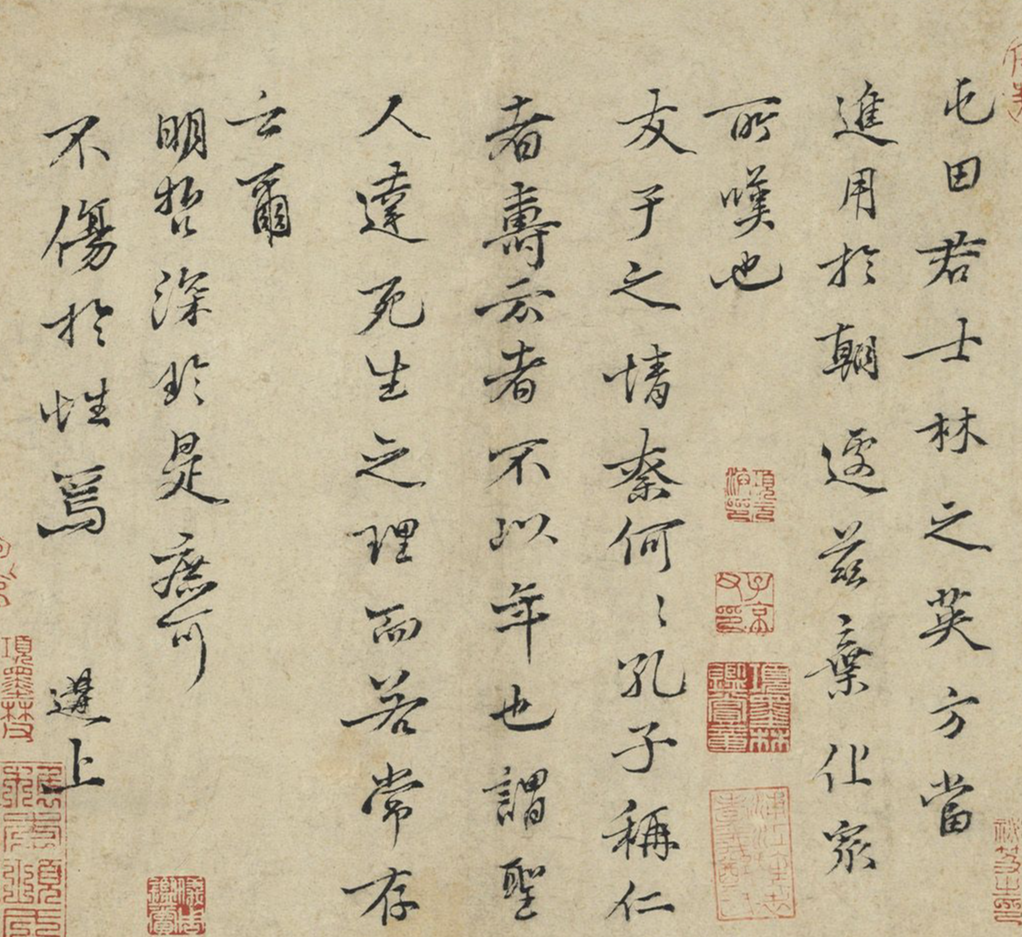 屯田君士林之英方當
進用於朝遽兹棄化眾
所嘆也
友于之情柰何〻孔子稱仁
者壽云者不以年也謂聖
人達死生之理而若常存
云爾
明哲深於是庶可
不傷於性焉 遘上
項墨林
子京